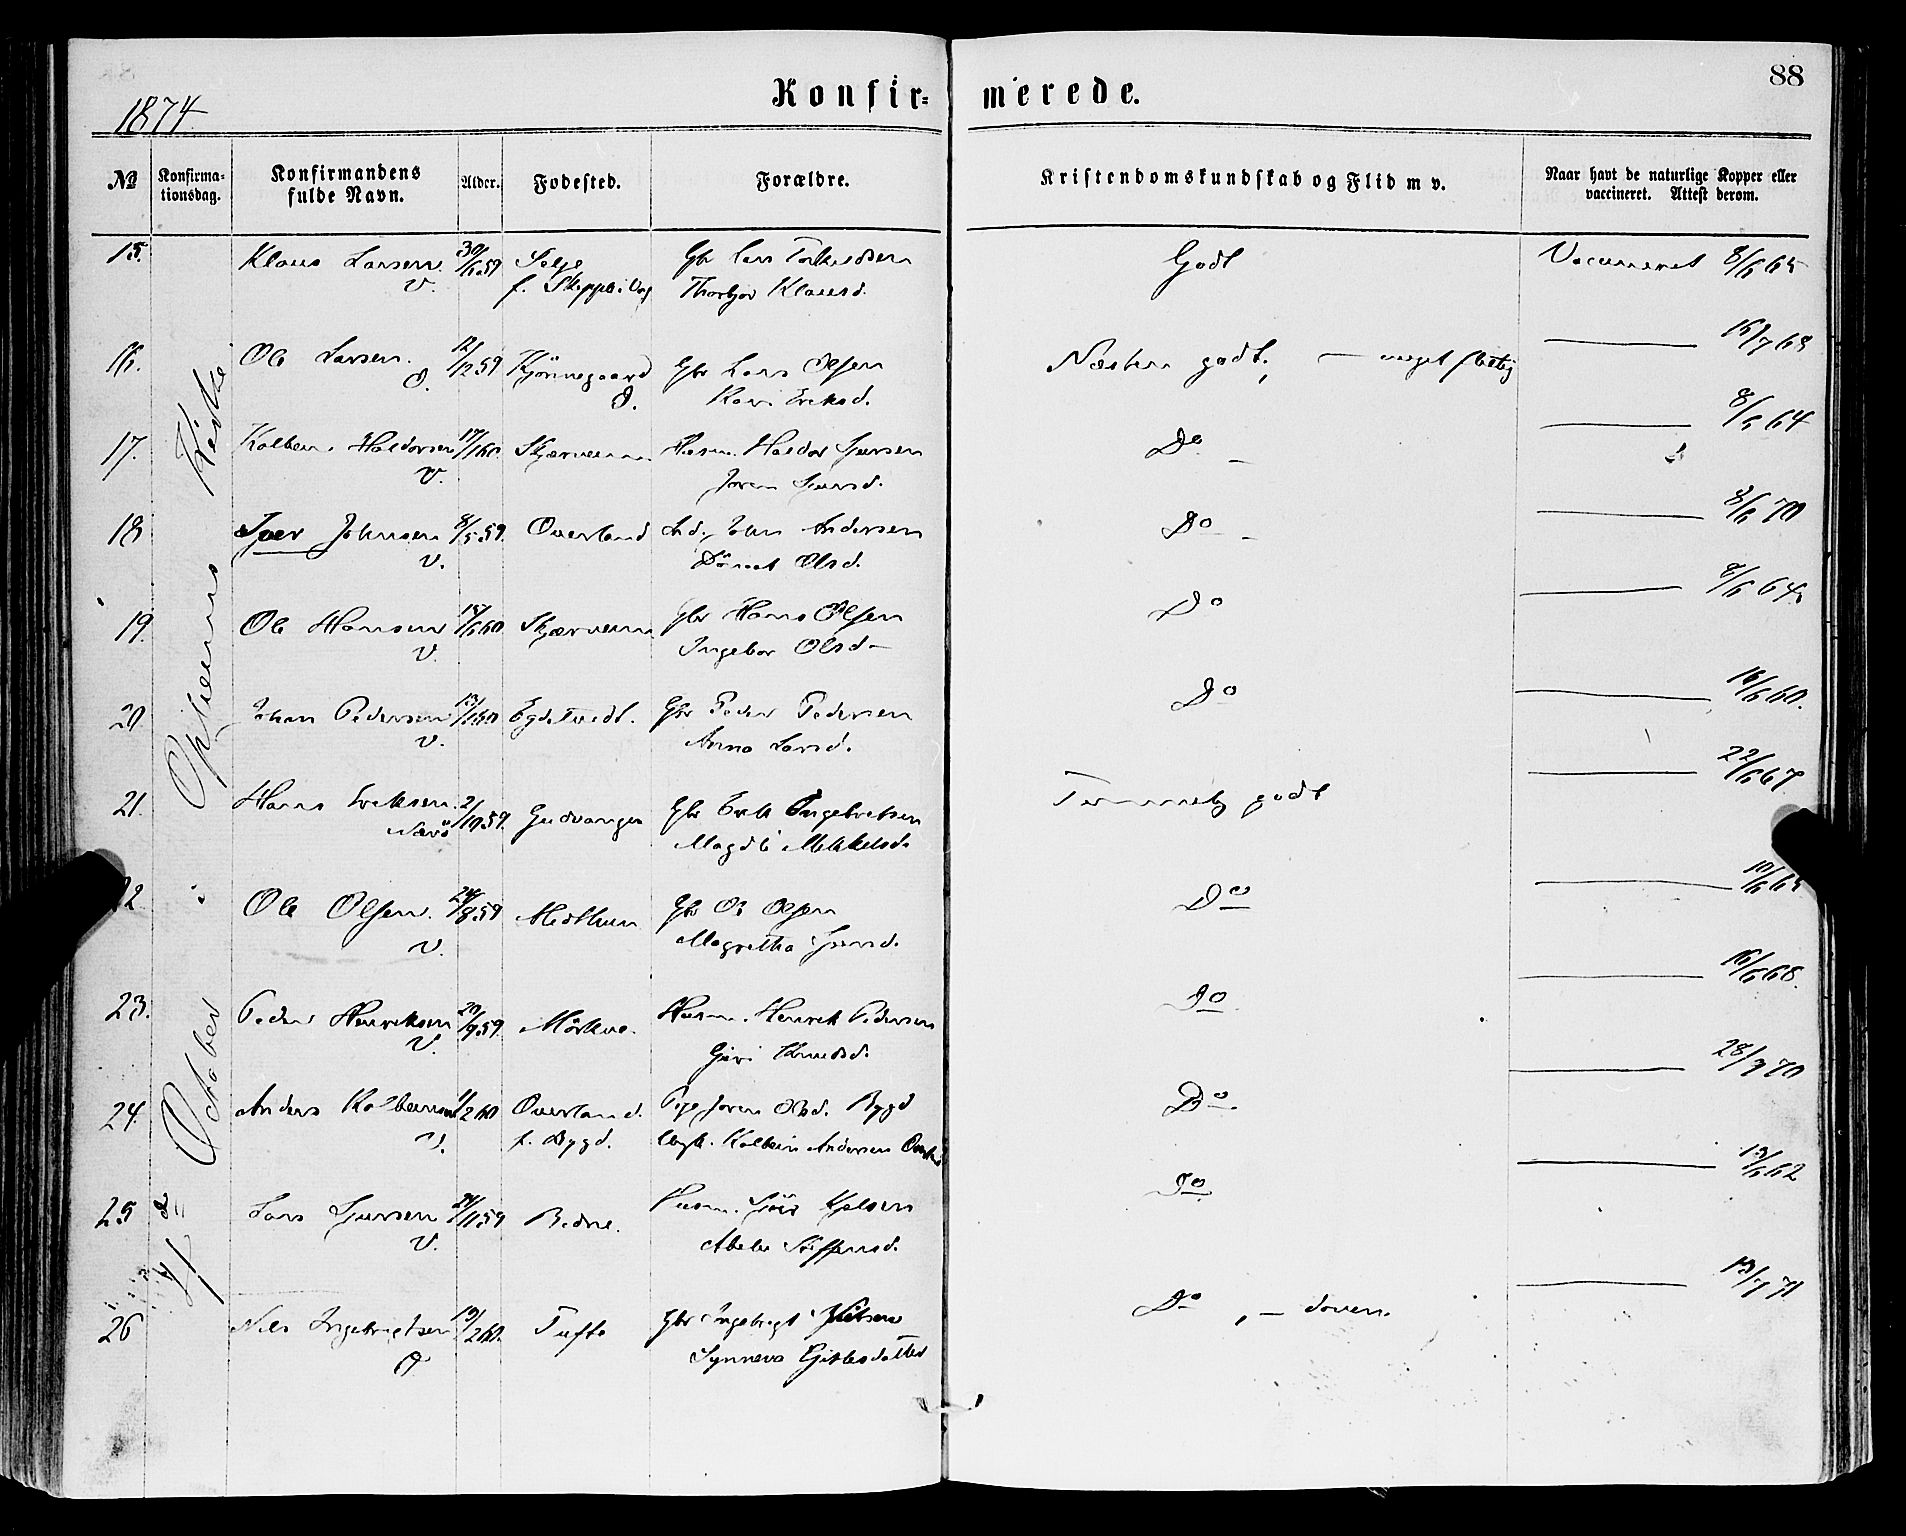 88
1874
Konfir= merede.
№ Konfirma-tionsdag. Konfirmandens fulde Navn. Alder. Fødested. Forældre. Kristendomskundskab og Flid m v. Naar havt de naturlige Kopper eller vaccineret. Attest derom.
4de October i Opheims Kirke
15. Klaus Larsen 30/6 59 Gbr Lars Godt Vaccineret 8/6 65
V. Thorbjør Klausd.
16. Ole Larsen. 12/12 59 Gbr Lars Olsen Næsten godt, — meget flittig — 16/7 68
O. O. Kari Eriksd.
17. Kolbein Haldorsen 17/1 60 Skjerveim Husm. Haldor Sjursen Do — 8/6 64
V. Joren Sjursd.
18 Iver Johnsen 8/5 59. Overland John Andersen Do — 8/6 70
V. Olsd.
19. Ole Hansen Skjerveim Gbr Hans Olsen Do — 8/6 64.
V. Ingebor Olsd
20 Johan Pedersen 13/1 60 Gbr Peder Pedersen Do — 16/6 60.
V. Anna Larsd.
21. Hans Eriksen. 2/10 59. Gudvangen Gbr Erik Ingebretsen Temmelig godt — 22/6 67
Nærö Magdli Mikkelsd.
22 Ole Olsen. 24/8 59 Midthun Gbr Ole Olsen Do — 10/6 65
V. Magretha
23. Peder Henriksen 20/9 59 Mørkve. Husm. Henrik Pedersen Do — 16/6 68.
V. Guri Knudsd.
24. Anders Kolbeinsen 1/2 60 Overland. Pige Joren Olsd. Bygd Do. — 28/9 70
V. f. Bygd. Kolbein Andersen
25 Lars Sjursen 21/11 59 Husm. Do. — 19/6 62
V. Steffensd.
26 Nils Ingebrigtsen 19/2 60. Tufte Gbr Ingebrigt Nilsen Do, — doven. — 19/7 71
O Synneva Gitlesdatter